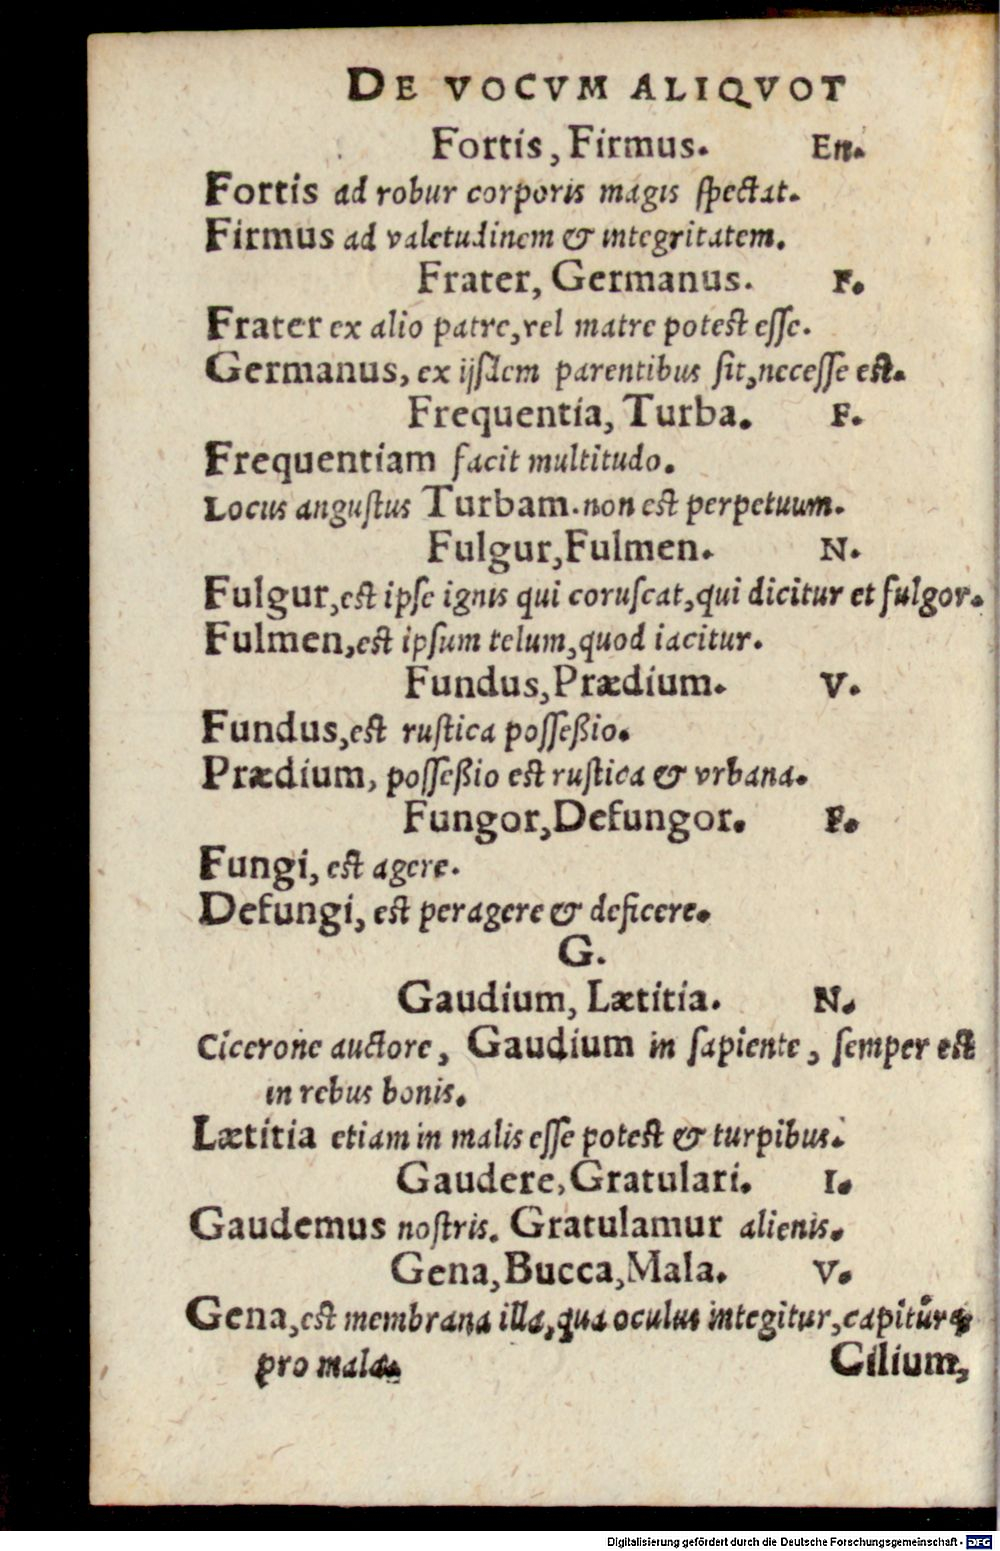 DE VOCVM ALIQVOT
Fortis, Firmus. En.
Fortis ad robur corporis magis spectat.
Firmus ad valetudinem & integritatem.
Frater, Germanus. F.
Frater ex alio patre, vel matre potest esse.
Germanus, ex ijsdem parentibus sit, necesse est.
Frequentia, Turba. F.
Frequentiam facit multitudo.
Locus angustus Turbam. non est perpetuum.
Fulgur, Fulmen. N.
Fulgur, est ipse ignis qui coruscat, qui dicitur et fulgor.
Fulmen, est ipsum telum, quod iacitur.
Fundus, Prædium. V.
Fundus, est rustica posseßio.
Prædium, posseßio est rustica & vrbana.
Fungor, Defungor. F.
Fungi, est agere.
Defungi, est peragere & deficere.
G.
Gaudium, Lætitia. N.
Cicerone auctore, Gaudium in sapiente, semper est
in rebus bonis.
Lætitia etiam in malis esse potest & turpibus.
Gaudere, Gratulari. I.
Gaudemus nostris. Gratulamur alienis.
Gena, Bucca, Mala. V.
Gena, est membrana illa, qua oculus integitur, capitur
pro mala.
Cilium,
Digitalisierung gefördert durch die Deutsche Forschungsgemeinschaft - DFG